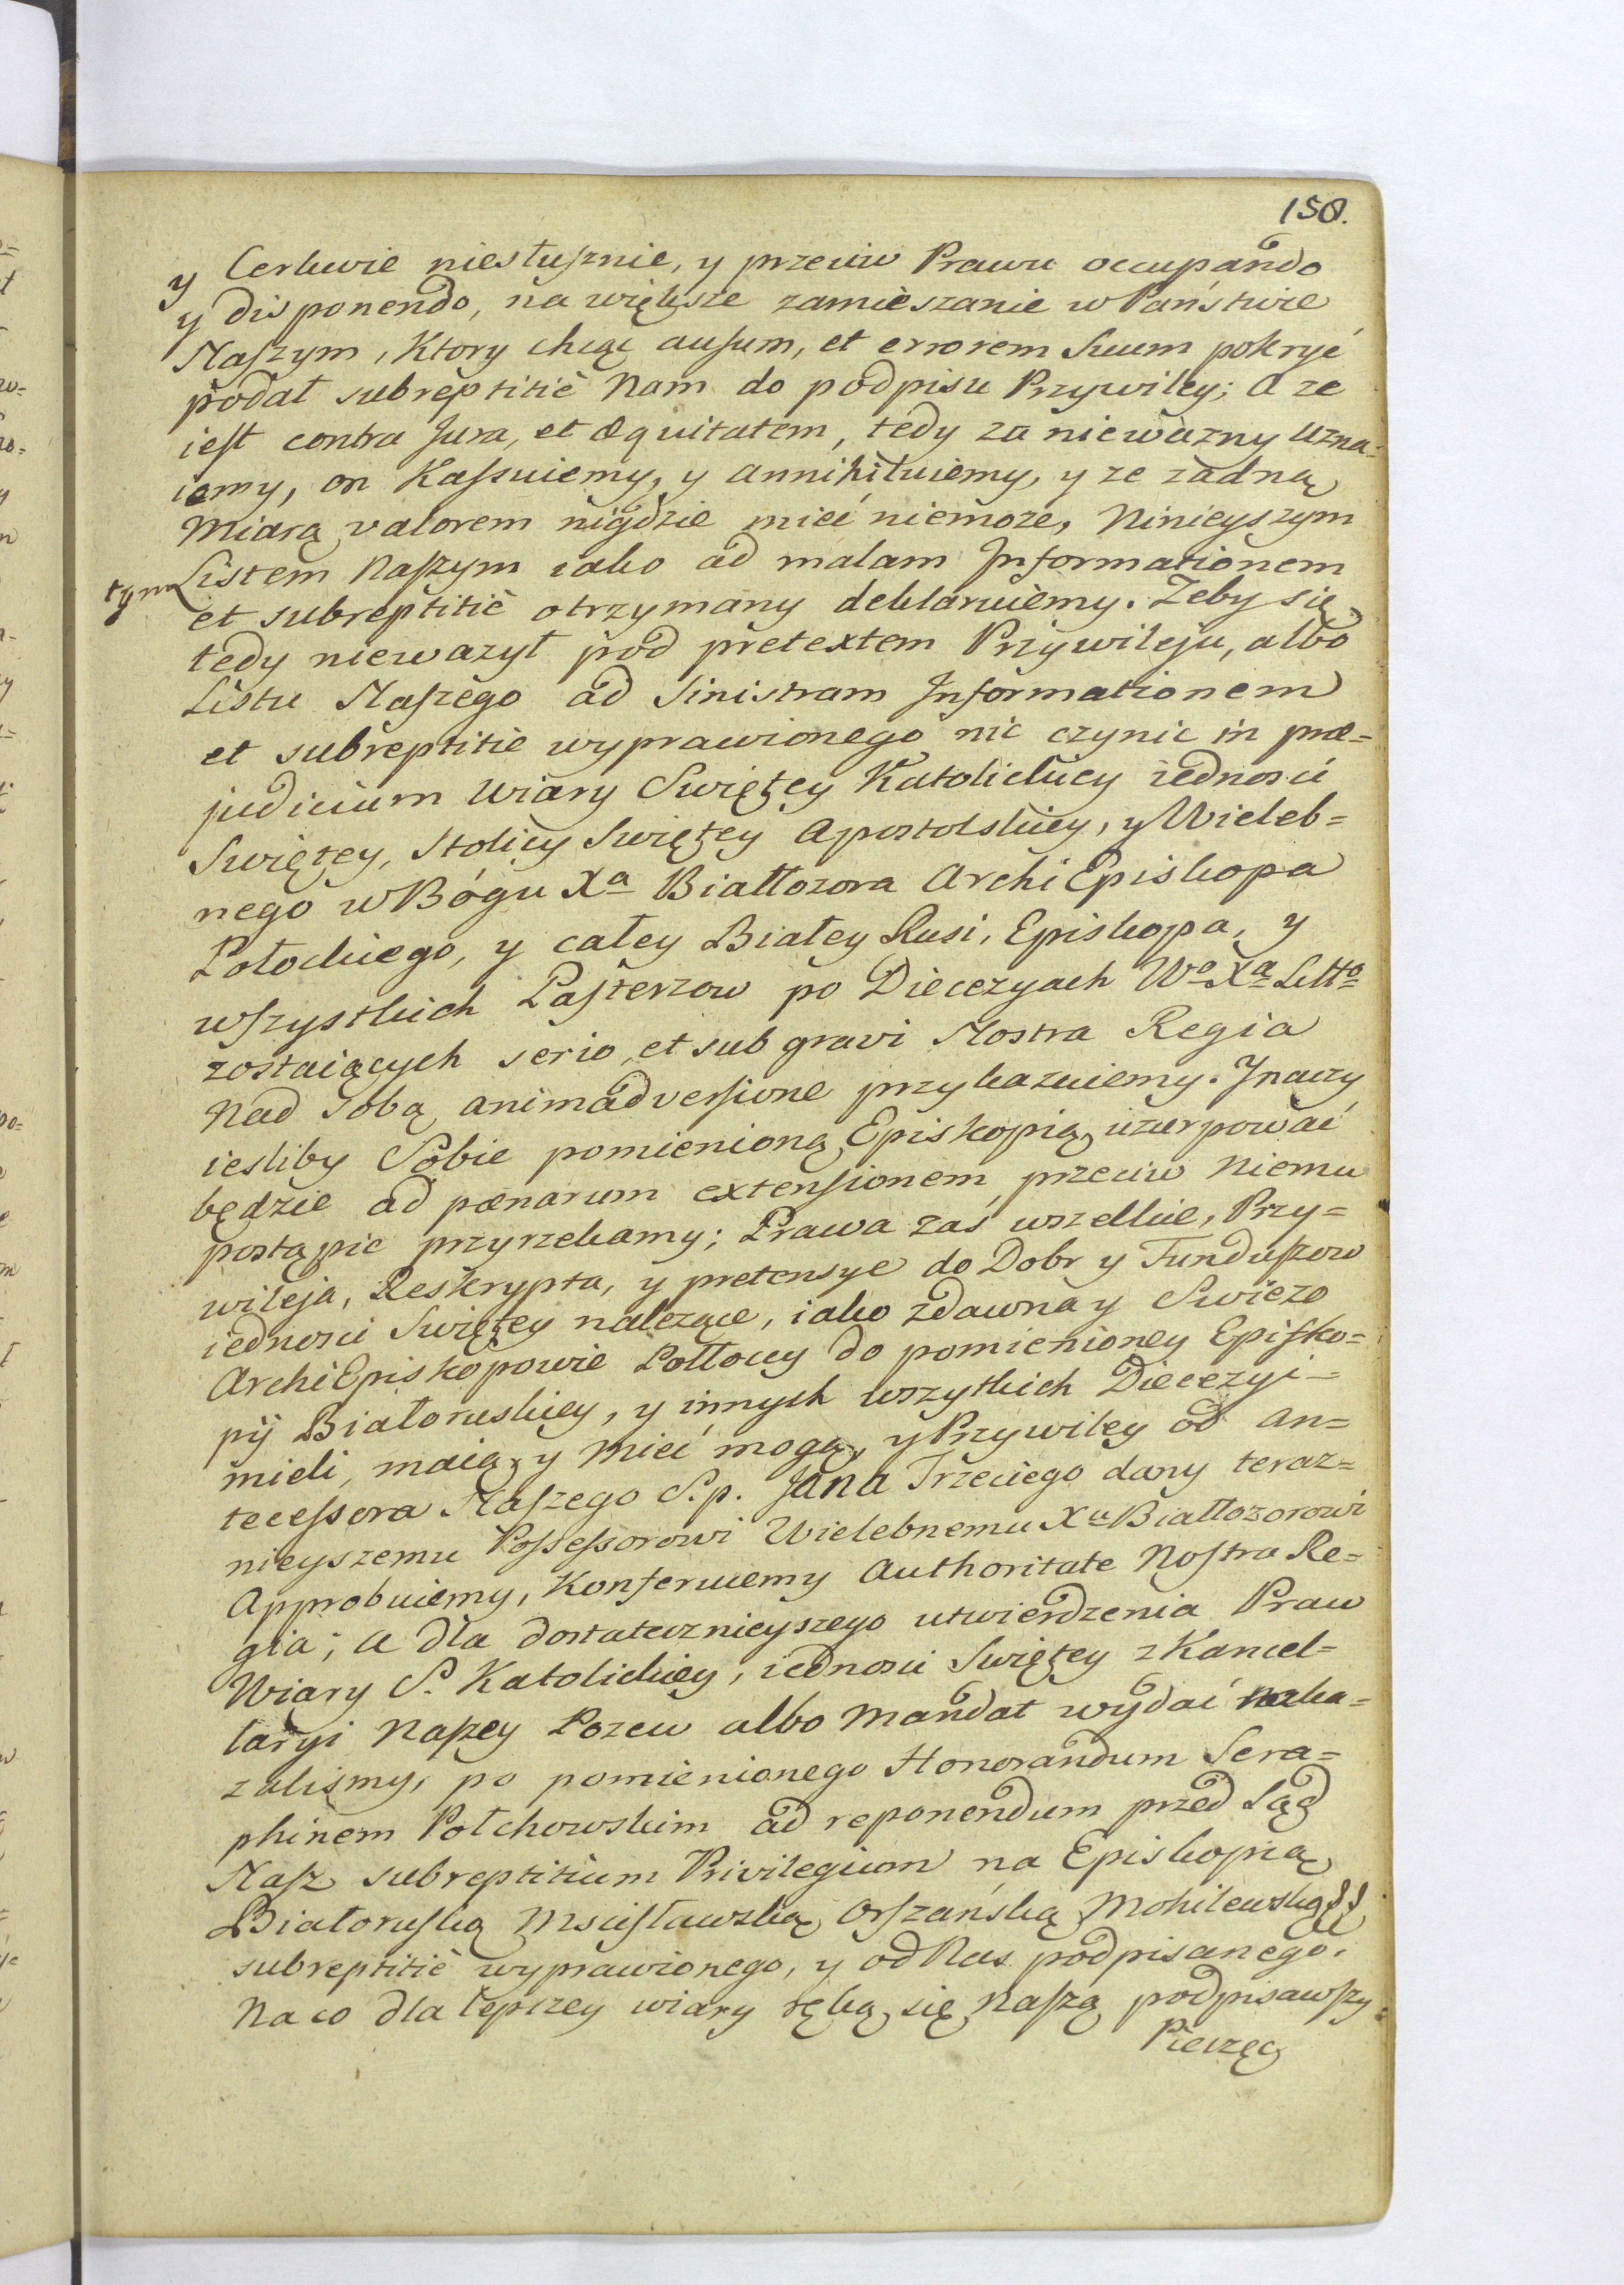 158.
y Cerkwie niesłusznie, y przeciw Prawu occupando
y disponendo, na większe zamieszanie w Państwie
Naszym, Ktory chcąc ausum, et errorem Suum pokryć
podał subreptitiè Nam do podpisu Przywiley; a ze
iest contra Jura, et æquitatem, tedy za niewazny uzna=
iemy, on Kassuiemy, y annihiluiemy, y ze zadną
Miarą valorem nigdzie mieć niemoze, Ninieyszym
tym Listem Naszym iako ad malam Informationem
et subreptitiè otrzymany deklaruiemy. Zeby się
tedy niewazył pod pretextem Przywileju, albo
Listu Naszego ad Sinistram Informationem
et subreptitie wyprawionego nic czynic in præ=
judicium Wiary Swiętey Katolickiey iednosci
Swiętey, Stolicy Swiętey Apostolskiey, y Wieleb=
nego w Bogu Xa Białłozora Archi Episkopa
Połockiego, y całey Białey Rusi, Episkopa, y
wszystkich Pasterzow po Diecezyach Wo Xa Litto
zostaiących serio, et sub gravi Nostra Regia
Nad Sobą animadversione przykazuiemy. Inaczy
iesliby Sobie pomienioną Episkopią uzurpować
będzie ad pœnarum extensionem przeciw Niemu
postąpic przyrzekamy; Prawa zaś wszelkie, Przy=
wileja, Reskrypta, y pretensye do Dobr y Funduszow
iednosci Swiętey nalezące, iako zdawna y Swiezo
ArchiEpiskopowie Połłoccy do pomienioney Episko=
pij Białoruskiey, y innych wszytkich Diecezyi=
mieli, maią, y Mieć mogą, y Przywiley od an=
tecessora Naszego S.p. Jana Trzeciego dany teraz=
nieyszemu Possessorowi Wielebnemu Xu Białłozorowi
Approbuiemy, Konferuiemy Authoritate Nostra Re=
gia; a dla dostatecznieyszego utwierdzenia Praw
Wiary S. Katolickiey, iednosci Swiętey z Kancel=
laryi Naszey Pozew albo Mandat wydać kaza=
zalismy, po pomienionego Honorandum Sera=
phinem Połchowskim ad reponendum przed Sąd
Nasz subreptitium Privilegium na Episkopią
Białoruską Mscisławską Orszańską Mohilewską
subreptitiè wyprawionego, y od Nas podpisanego.
Na co dla lepszey wiary ręką się Naszą podpisawszy=
Pieczęć